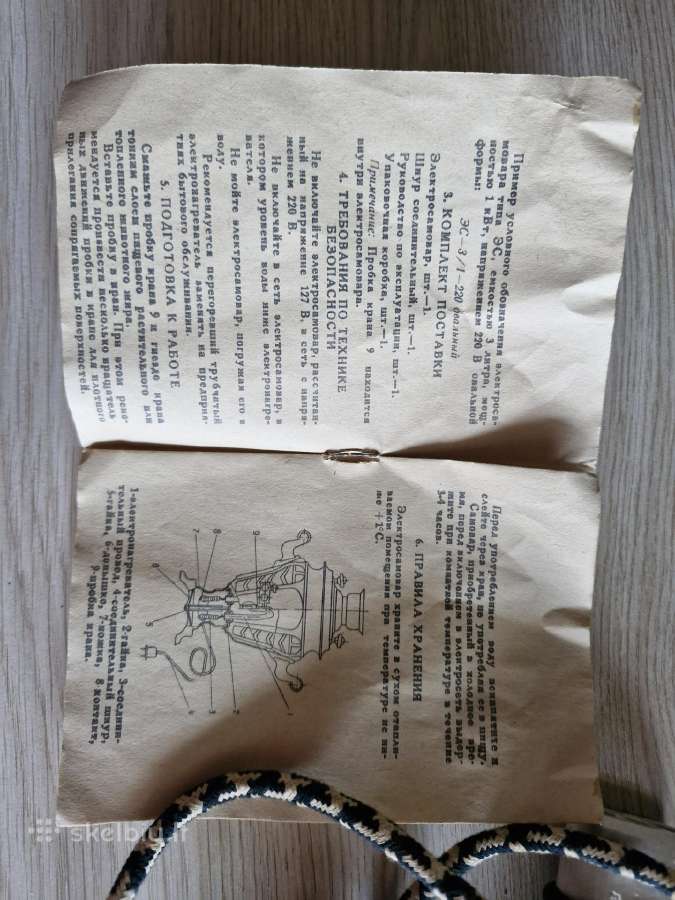 Пример условного обозначения электроса-
мовара типа ЭС, емкостью 3 литра, мощ-
ностью 1 кВт, напряжением 220 В овальной
формы:
ЭС—3/1—220 овальный
3. КОМПЛЕКТ ПОСТАВКИ
Электросамовар, шт.—1.
Шнур соединительный, шт.—1.
Руководство по эксплуатации, шт.—1.
Упаковочная коробка, шт.—1.
Примечание: Пробка крана 9 находится
внутри электросамовара.
4. ТРЕБОВАНИЯ ПО ТЕХНИКЕ
БЕЗОПАСНОСТИ
Не включайте электросамовар, рассчитан-
ный на напряжение 127 В, в сеть с напря-
жением 220 В.
Не включайте в сеть электросамовар, в
котором уровень воды ниже электронагре-
вателя.
Не мойте электросамовар, погружая его в
воду.
Рекомендуется перегоревший трубчатый
электронагреватель заменять на предприя-
тиях бытового обслуживания.
5. ПОДГОТОВКА К РАБОТЕ
Смажьте пробку крана 9 и гнездо крана
тонким слоем пищевого растительного или
топленного животного жира.
Вставьте пробку в кран. При этом реко-
мендуется произвести несколько вращатель
ных движений пробки в кране для плотного
прилегания сопрягаемых поверхностей.
Перед употреблением воду вскипятите и
слейте через кран, не употребляя ее в пищу.
Самовар, приобретенный в холодное вре-
мя, перед включением в электросеть выдер-
жите при комнатной температуре в течение
3-4 часов.
6. ПРАВИЛА ХРАНЕНИЯ
Электросамовар храните в сухом отапли-
ваемом помещении при температуре не ни-
же +1°С.
9
8
7
6
5
4
3
2
1
1-электронагреватель, 2-гайка, 3-соедини-
тельный провод, 4-соединительный шнур,
5-гайка, 6-донышко, 7-ножка, 8 контакт,
9-пробка крана.
skelbiu.lt